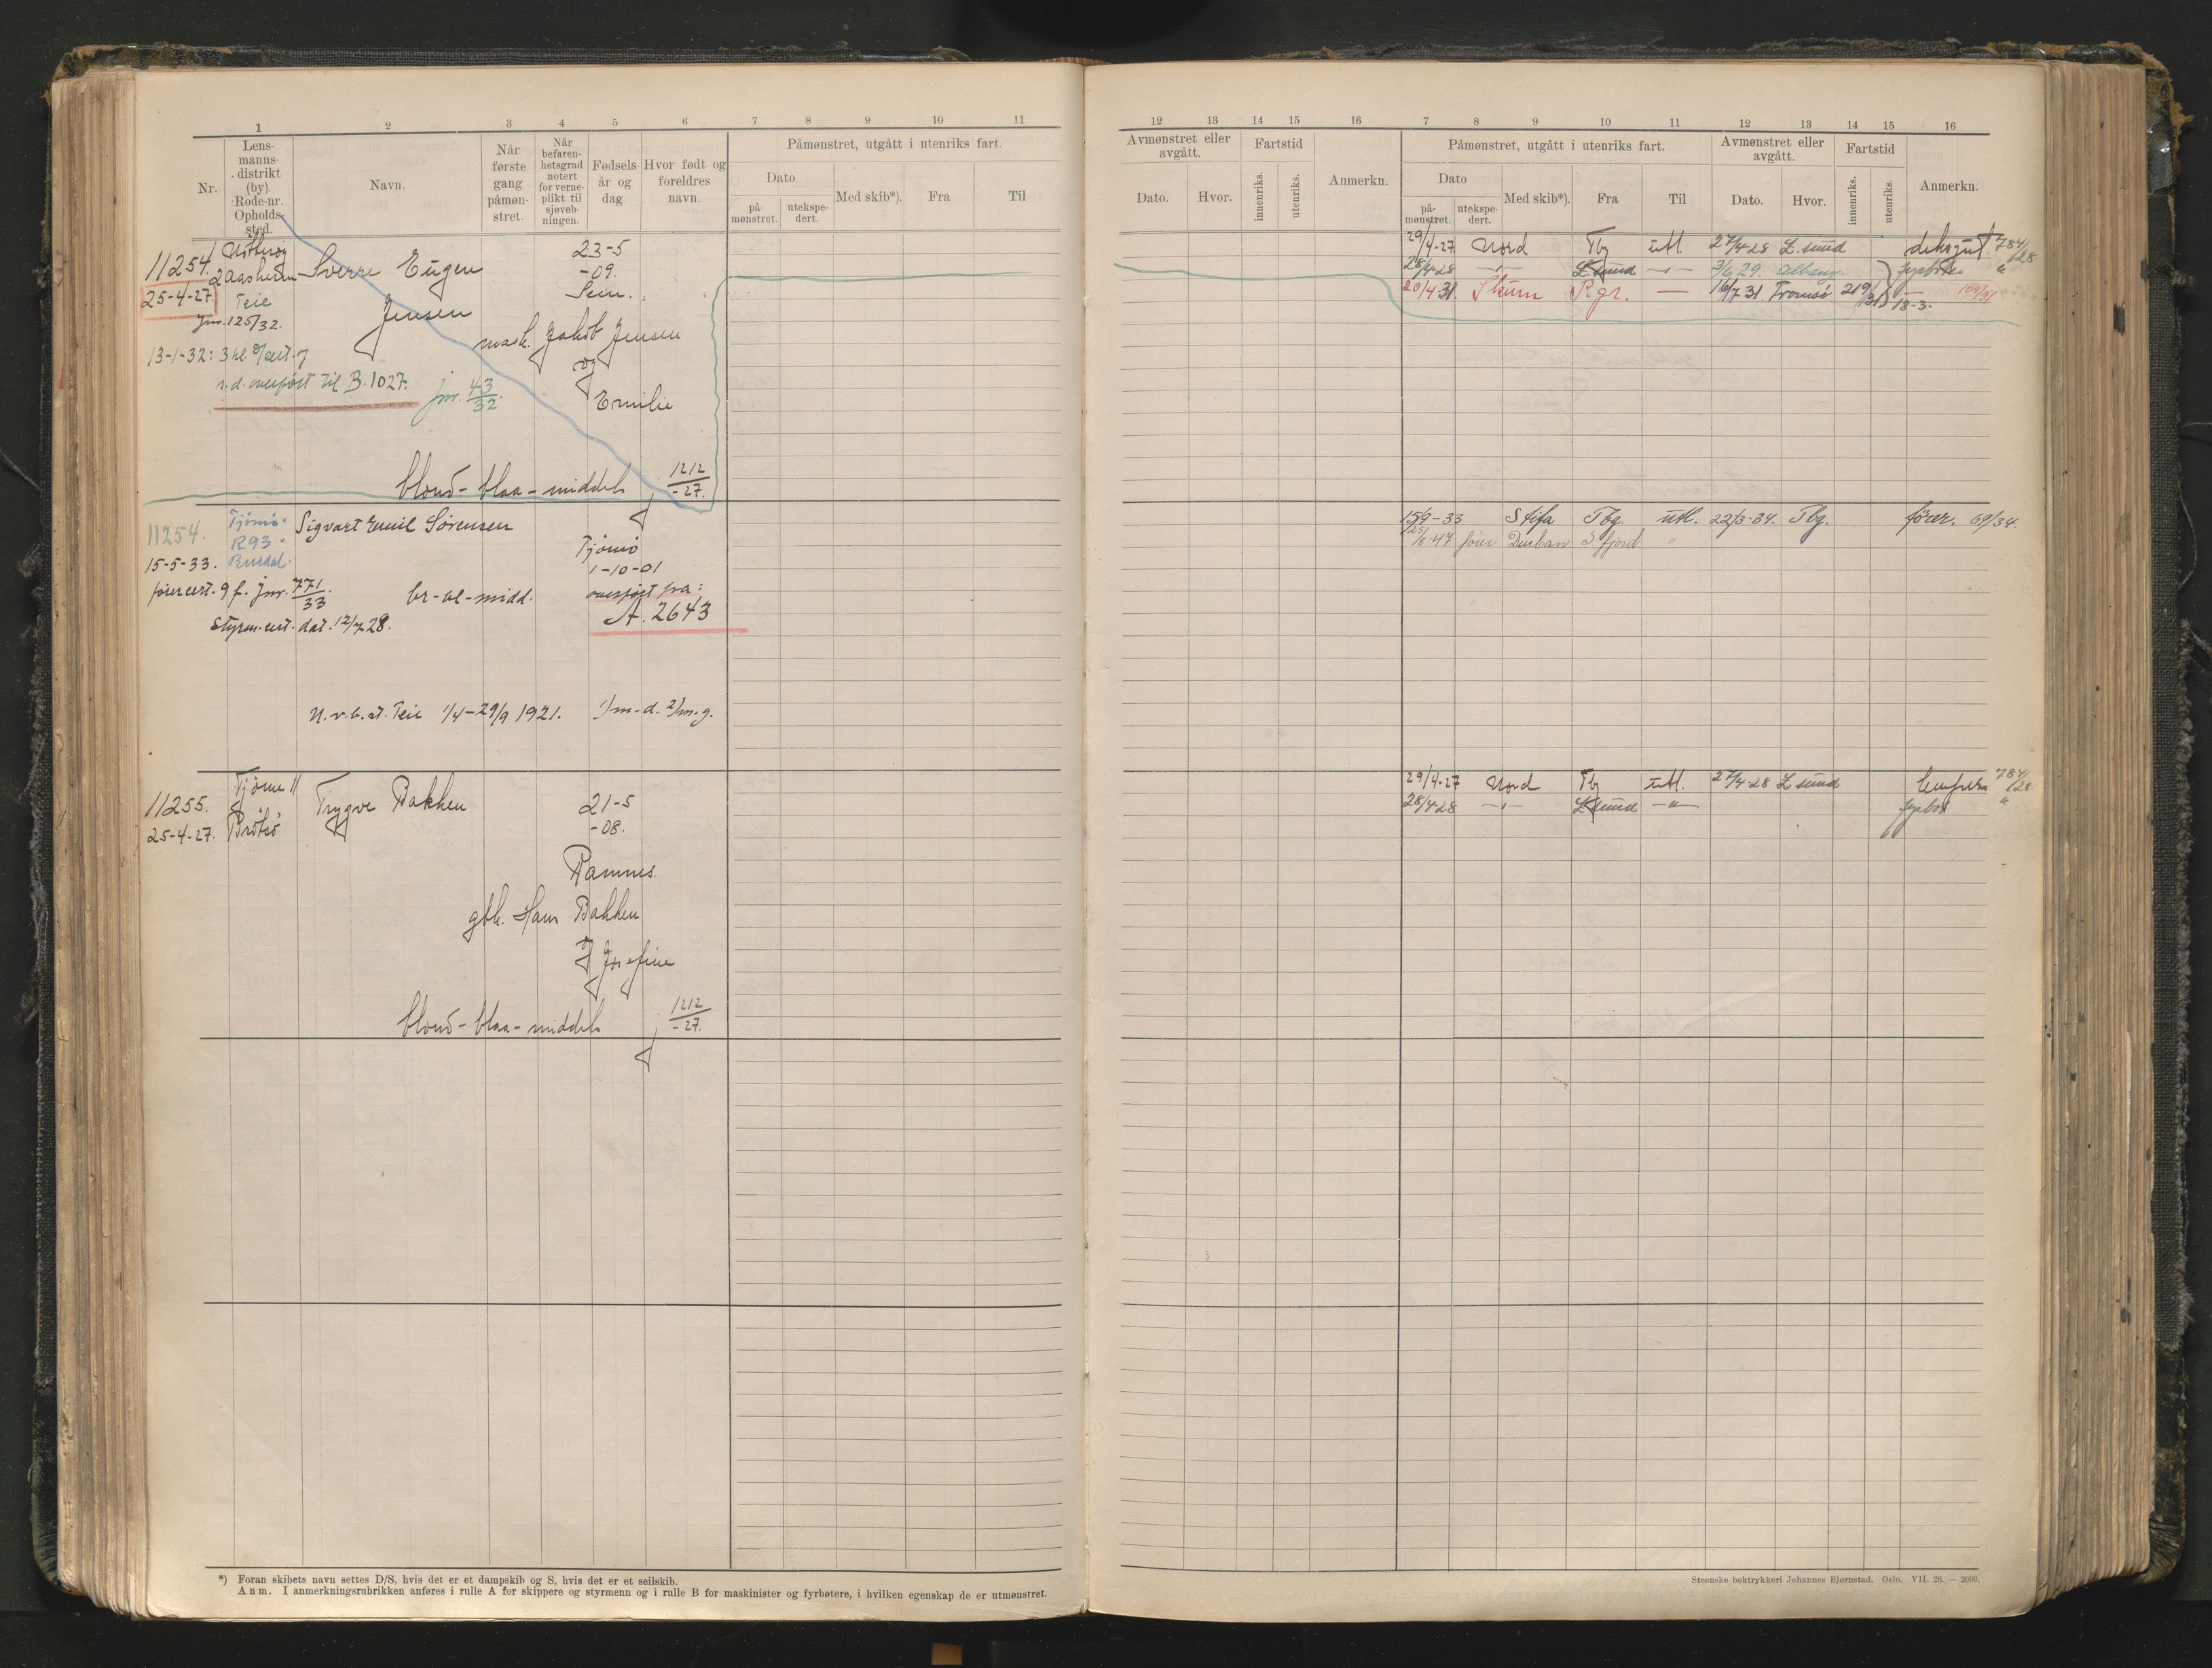 1 2 3 4 5 6 7 8 9 10 11
Nr.
Lens-
manns-
distrikt
(by).
Rode-nr.
Opholds-
sted.
Navn.
Når
første
gang
påmøn-
stret.
Når
befaren-
hetsgrad
notert
for verne-
plikt til
sjøveb-
ningen.
Fødsels-
år og
dag.
Hvor født og
foreldres
navn.
Påmønstret, utgått i utenriks fart.
Dato
på-
mønstret.
utekspe-
dert.
Med skib*).
Fra
Til
11254.
25-4-27.
Nøtterøy
2 Aasheim
Teie
jnr. 125/32.
Sverre Eugen
Jensen
23-5
-09.
Sem.
mask. Jakob Jensen
og
Emilie
13-1-32: 3 kl.
s.d. overført til B. 1027.
jnr. 43/32
blond - blaa - middels
j 1212/-27.
11254.
15-5-33.
Tjømø.
R93.
Sigvart Emil Sørensen
Tjømø
1-10-01
overført fra:
A. 2643
førercert. 9 f. jnr. 771/33
br-bl-midd.
Styrm.cert. dat. 12/7 28.
U.v.b.st. Teie 1/4-29/9 1921. 1/m-d. 2/m.g.
11255.
25-4-27.
Tjøme 11
Brøtsø
Trygve Bakken
21-5
-08.
Ramnes
gbk. Hans Bakken
og Josefine
blond - blaa - middels
j 1212/-27.
*) Foran skibets navn settes D/S, hvis det er et dampskib og S, hvis det er et seilskib.
Anm. I anmerkningsrubrikken anføres i rulle A for skippere og styrmenn og i rulle B for maskinister og fyrbøtere, i hvilken egenskap de er utmønstret.
12 13 14 15 16 7 8 9 10 11 12 13 14 15 16
Avmønstret eller
avgått.
Dato.
Hvor.
Fartstid
innenriks.
utenriks.
Anmerkn.
Påmønstret, utgått i utenriks fart.
Dato
på-
mønstret.
utekspe-
dert.
Med skib*).
Fra
Til
Avmønstret eller
avgått.
Dato.
Hvor.
Fartstid
innenriks.
utenriks.
Anmerkn.
29/4-27 Nord Tbg utl. 27/4-28 L.sund deksgut 784/28
28/4 28 -"- L.sund -"- 3/6 29. Albany. fyrbøt. "
20/4 31. Skum P.gr. — 16/7 31. Tromsø 219/31 — 18-3.
15/9-33 Stifa Tbg. utl. 22/3-34. Tbg. fører. 69/34.
25/8-47 fører Durban S fjord "
29/4-27 Nord Tbg utl. 27/4-28 L sund lempera 784/28
28/4 28 -"- L sund -"- fyrbøt "
Steenske boktrykkeri Johannes Bjørnstad. Oslo. VII. 26. — 2000.